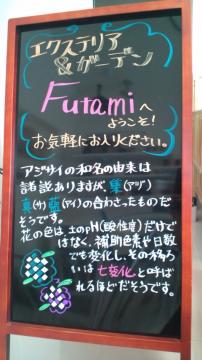 エクステリア
&ガーデン
Futamiへ
ようこそ!
お気軽にお入りください。
アジサイの和名の由来は
諸説ありますが、集(アヅ)
真(サ)藍(アイ)の合わさったものだ
そうです。
花の色は、土のpH(酸性度)だけで
はなく、補助色素や日数
でも変化し、その様ろ
いは七変化と呼ば
れるほどだそうです。